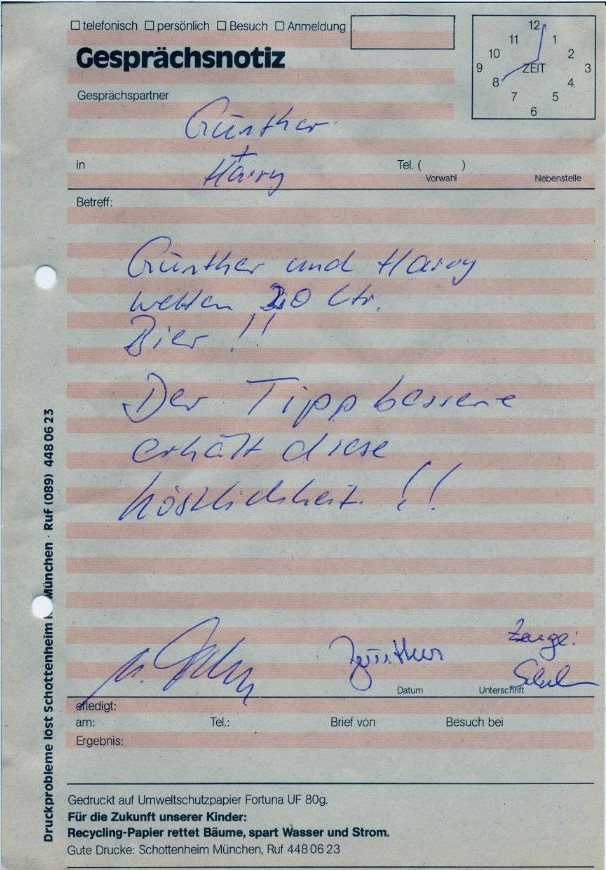 ☐ telefonisch ☐ persönlich ☐ Besuch ☐ Anmeldung
Gesprächsnotiz
12
11 1
10 2
9 ZEIT 3
8 4
7 5
6
Gesprächspartner
Günther
+
in Harry Tel. ( )
Vorwahl Nebenstelle
Betreff:
Günther und Harry
wetten 20 Ltr.
Bier !!
Der Tippbessere
erhält diese
Köstlichkeit. !!
Günther
Zeuge:
Datum Unterschrift
erledigt:
am: Tel.: Brief von Besuch bei
Ergebnis:
Gedruckt auf Umweltschutzpapier Fortuna UF 80g.
Für die Zukunft unserer Kinder:
Recycling-Papier rettet Bäume, spart Wasser und Strom.
Gute Drucke: Schottenheim München, Ruf 448 06 23
Druckprobleme löst Schottenheim München · Ruf (089) 448 06 23